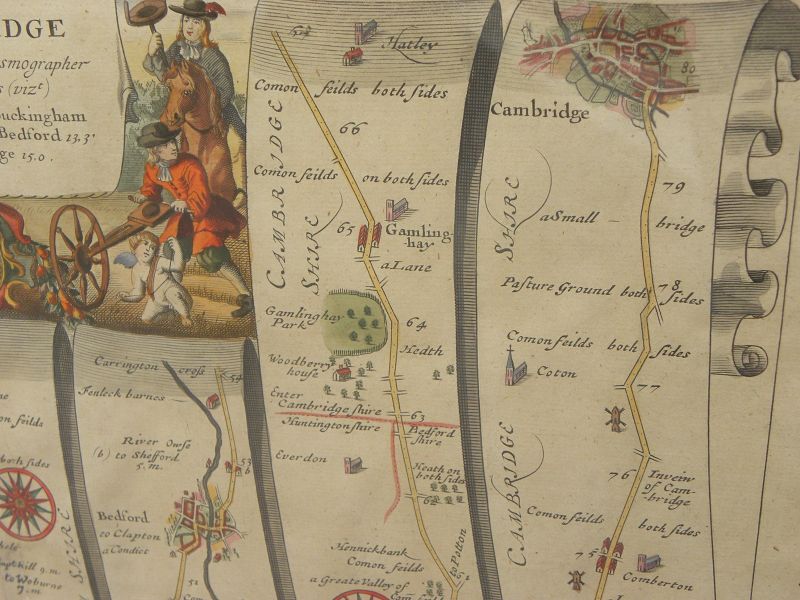 DGE
smographer
s (vizt)
uckingham
Bedford 13.3'
ge 15.0.
54
Hatley
Comon feilds both sides
66
Comon feilds on both sides
CAMBRIDGE
SHIRE
65
Gamling-
hay
a Lane
Gamlinghay
Park
64
Hedth
Woodberry
house
Enter
Cambridge shire
63
Huntington shire
Bedford
shire
Everdon
Heath on
both sides
62
Hennickbank
Comon feilds
to Potton
a Greate Valley of
Cambridge
80
79
SHIRE
a Small
bridge
78
Pasture Ground both sides
Comon feilds both sides
Coton
77
CAMBRIDGE
76
Invein
of Cam-
bridge
Comon feilds both sides
75
Comberton
Carrington cross
54
Fenleck barnes
River Owse
(b) to Shefford
5.m.
53
b
Bedford
to Clapton
a Condict
51
n feilds
both sides
SHIRE
9.m.
to Woburne
7.m